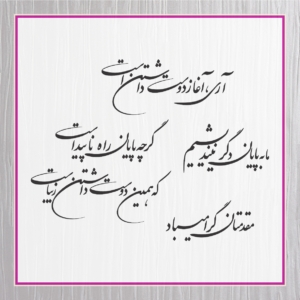 آری، آغاز دوست داشتن است
گرچه پایان راه ناپیداست
ما به پایان دگر نیندیشیم
که همین دوست داشتن زیباست
مقدمتان گرامیباد